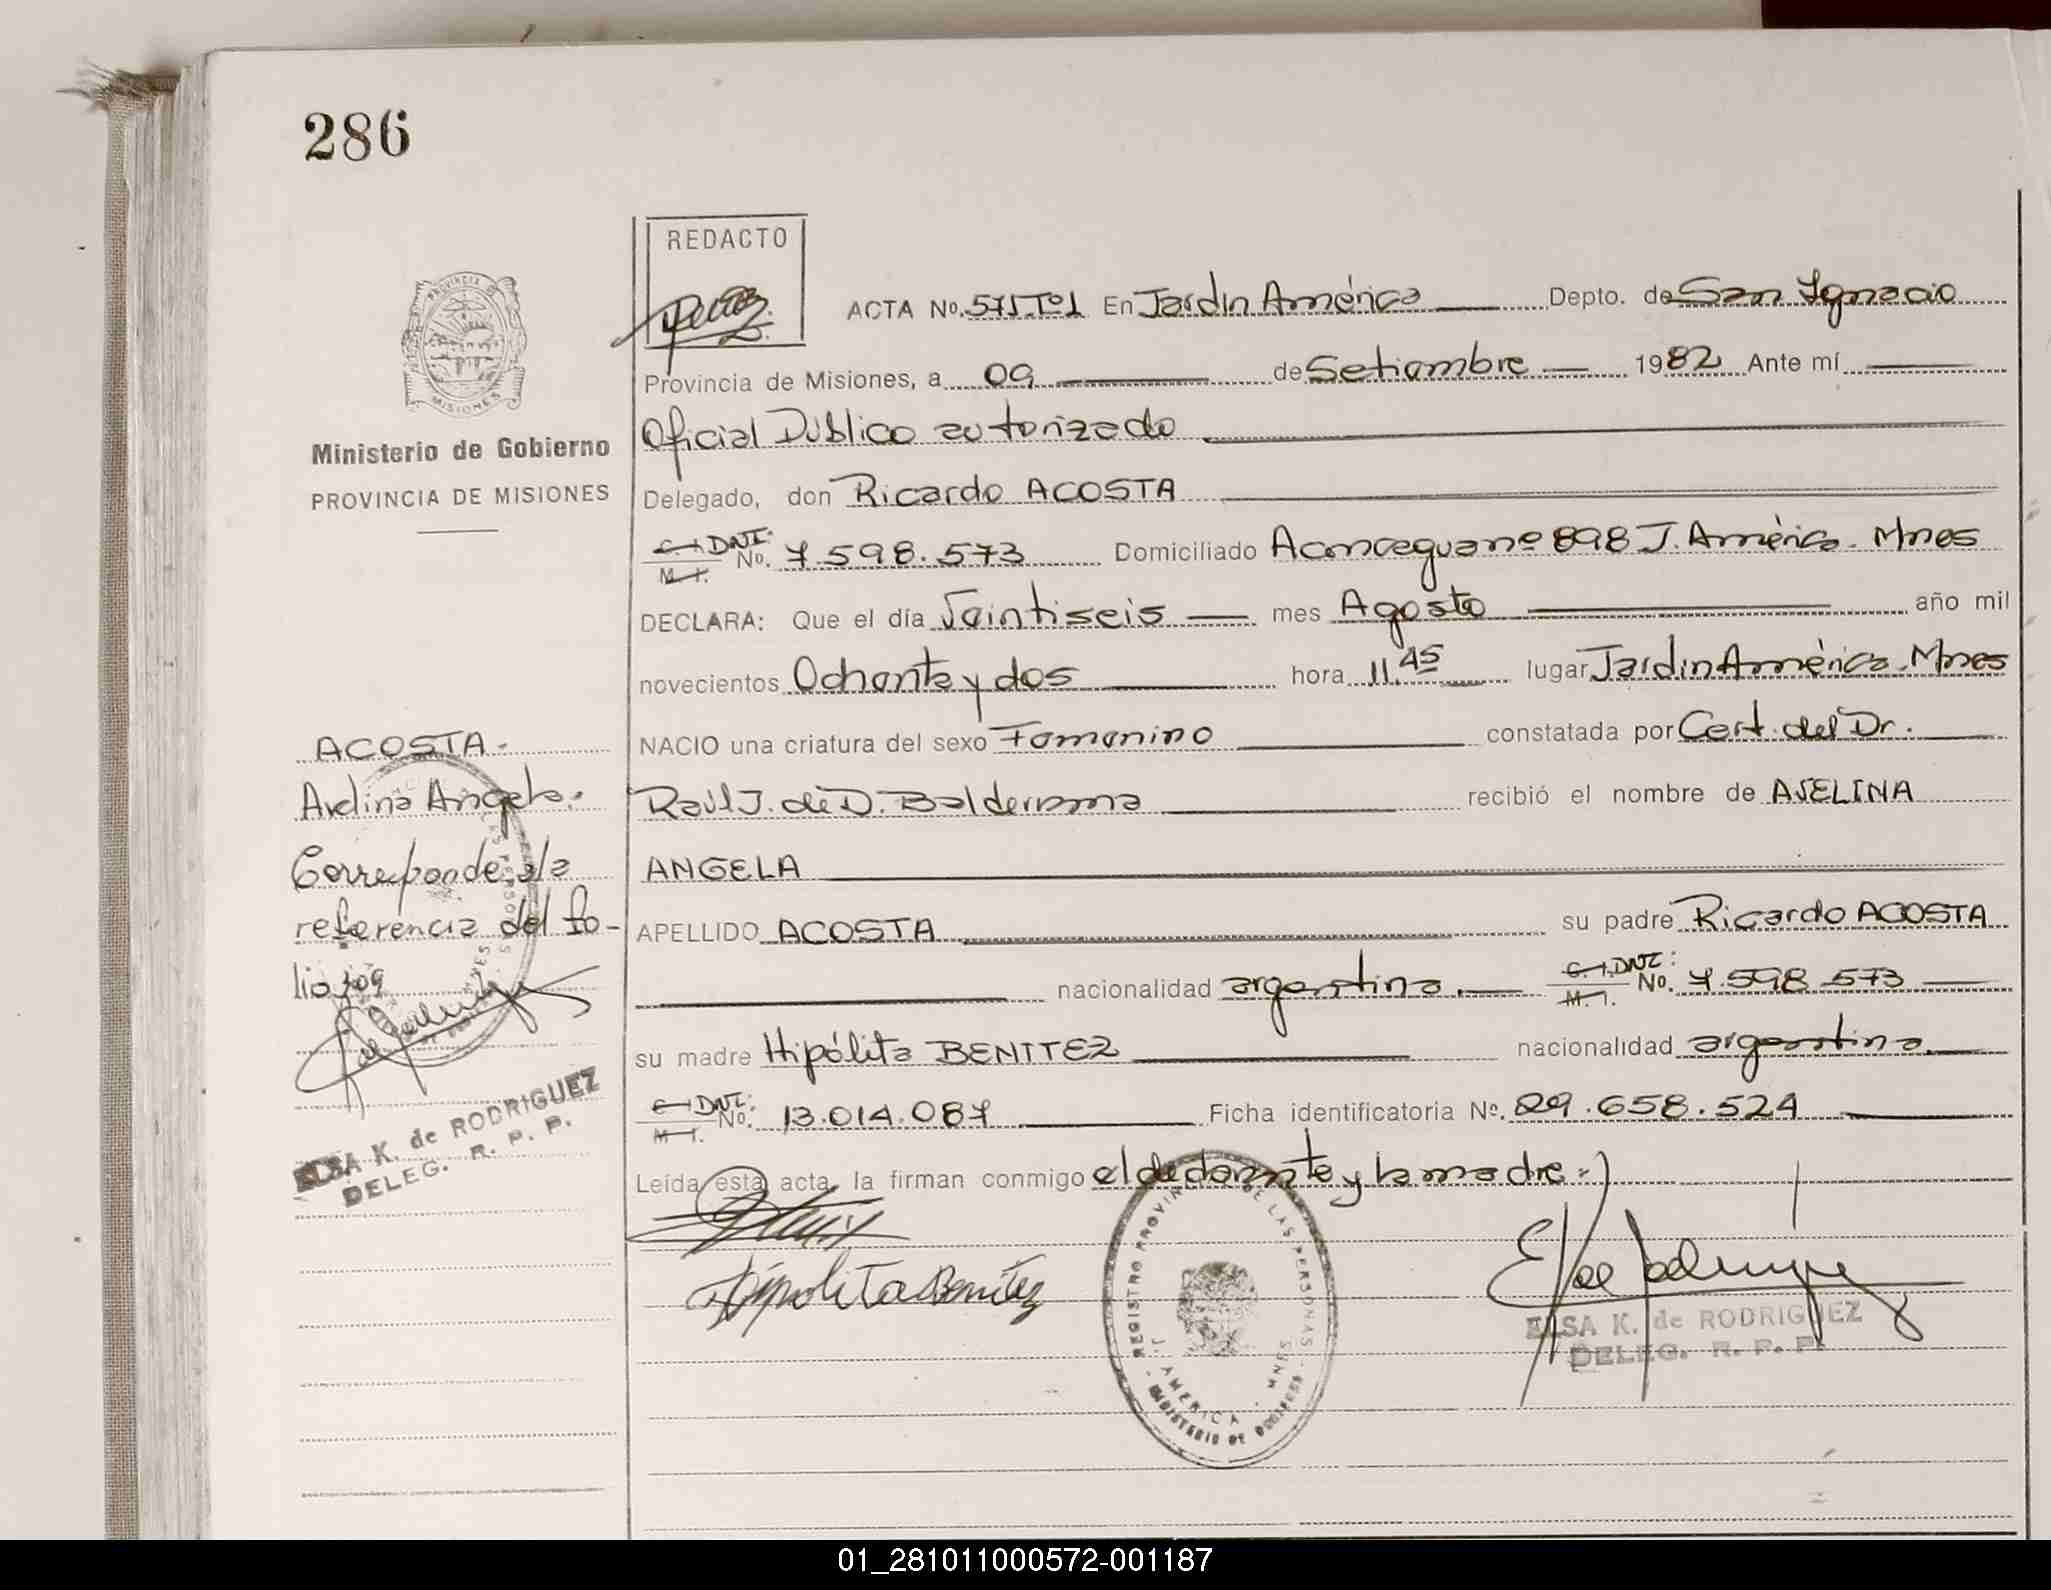 286
REDACTO
ACTA No. 571 Tº1 En Jardin América Depto. de San Ignacio
Provincia de Misiones, a 09 de Setiembre 1982 Ante mí
Oficial Público autorizado
Ministerio de Gobierno
PROVINCIA DE MISIONES
Delegado, don Ricardo ACOSTA
C.I. DNI: M.I. No. 7.598.573 Domiciliado Aconcagua nº 898 J. América. Mnes
DECLARA: Que el día Veintiseis mes Agosto año mil
novecientos Ochenta y dos hora 11,45 lugar Jardin América. Mnes
NACIO una criatura del sexo Femenino constatada por Cert. del Dr.
Raúl J. de D. Balderrama recibió el nombre de AVELINA
ANGELA
APELLIDO ACOSTA su padre Ricardo ACOSTA
nacionalidad argentina. C.I. DNI: M.I. No. 7.598.573
su madre Hipólita BENITEZ nacionalidad argentina
C.I. DNI: M.I. No. 13.014.087 Ficha identificatoria Nº. 29.658.524
Leída esta acta, la firman conmigo el declarante y la madre.-
ACOSTA.
Avelina Angela.
Corresponde a la
referencia del fo-
lio 309
ELSA K. de RODRIGUEZ
DELEG. R. P. P.
Hipolita Benitez
REGISTRO PROVINCIAL DE LAS PERSONAS
J. AMERICA - MNES
MINISTERIO DE GOBIERNO
ELSA K. de RODRIGUEZ
DELEG. R. P. P.
01_281011000572-001187